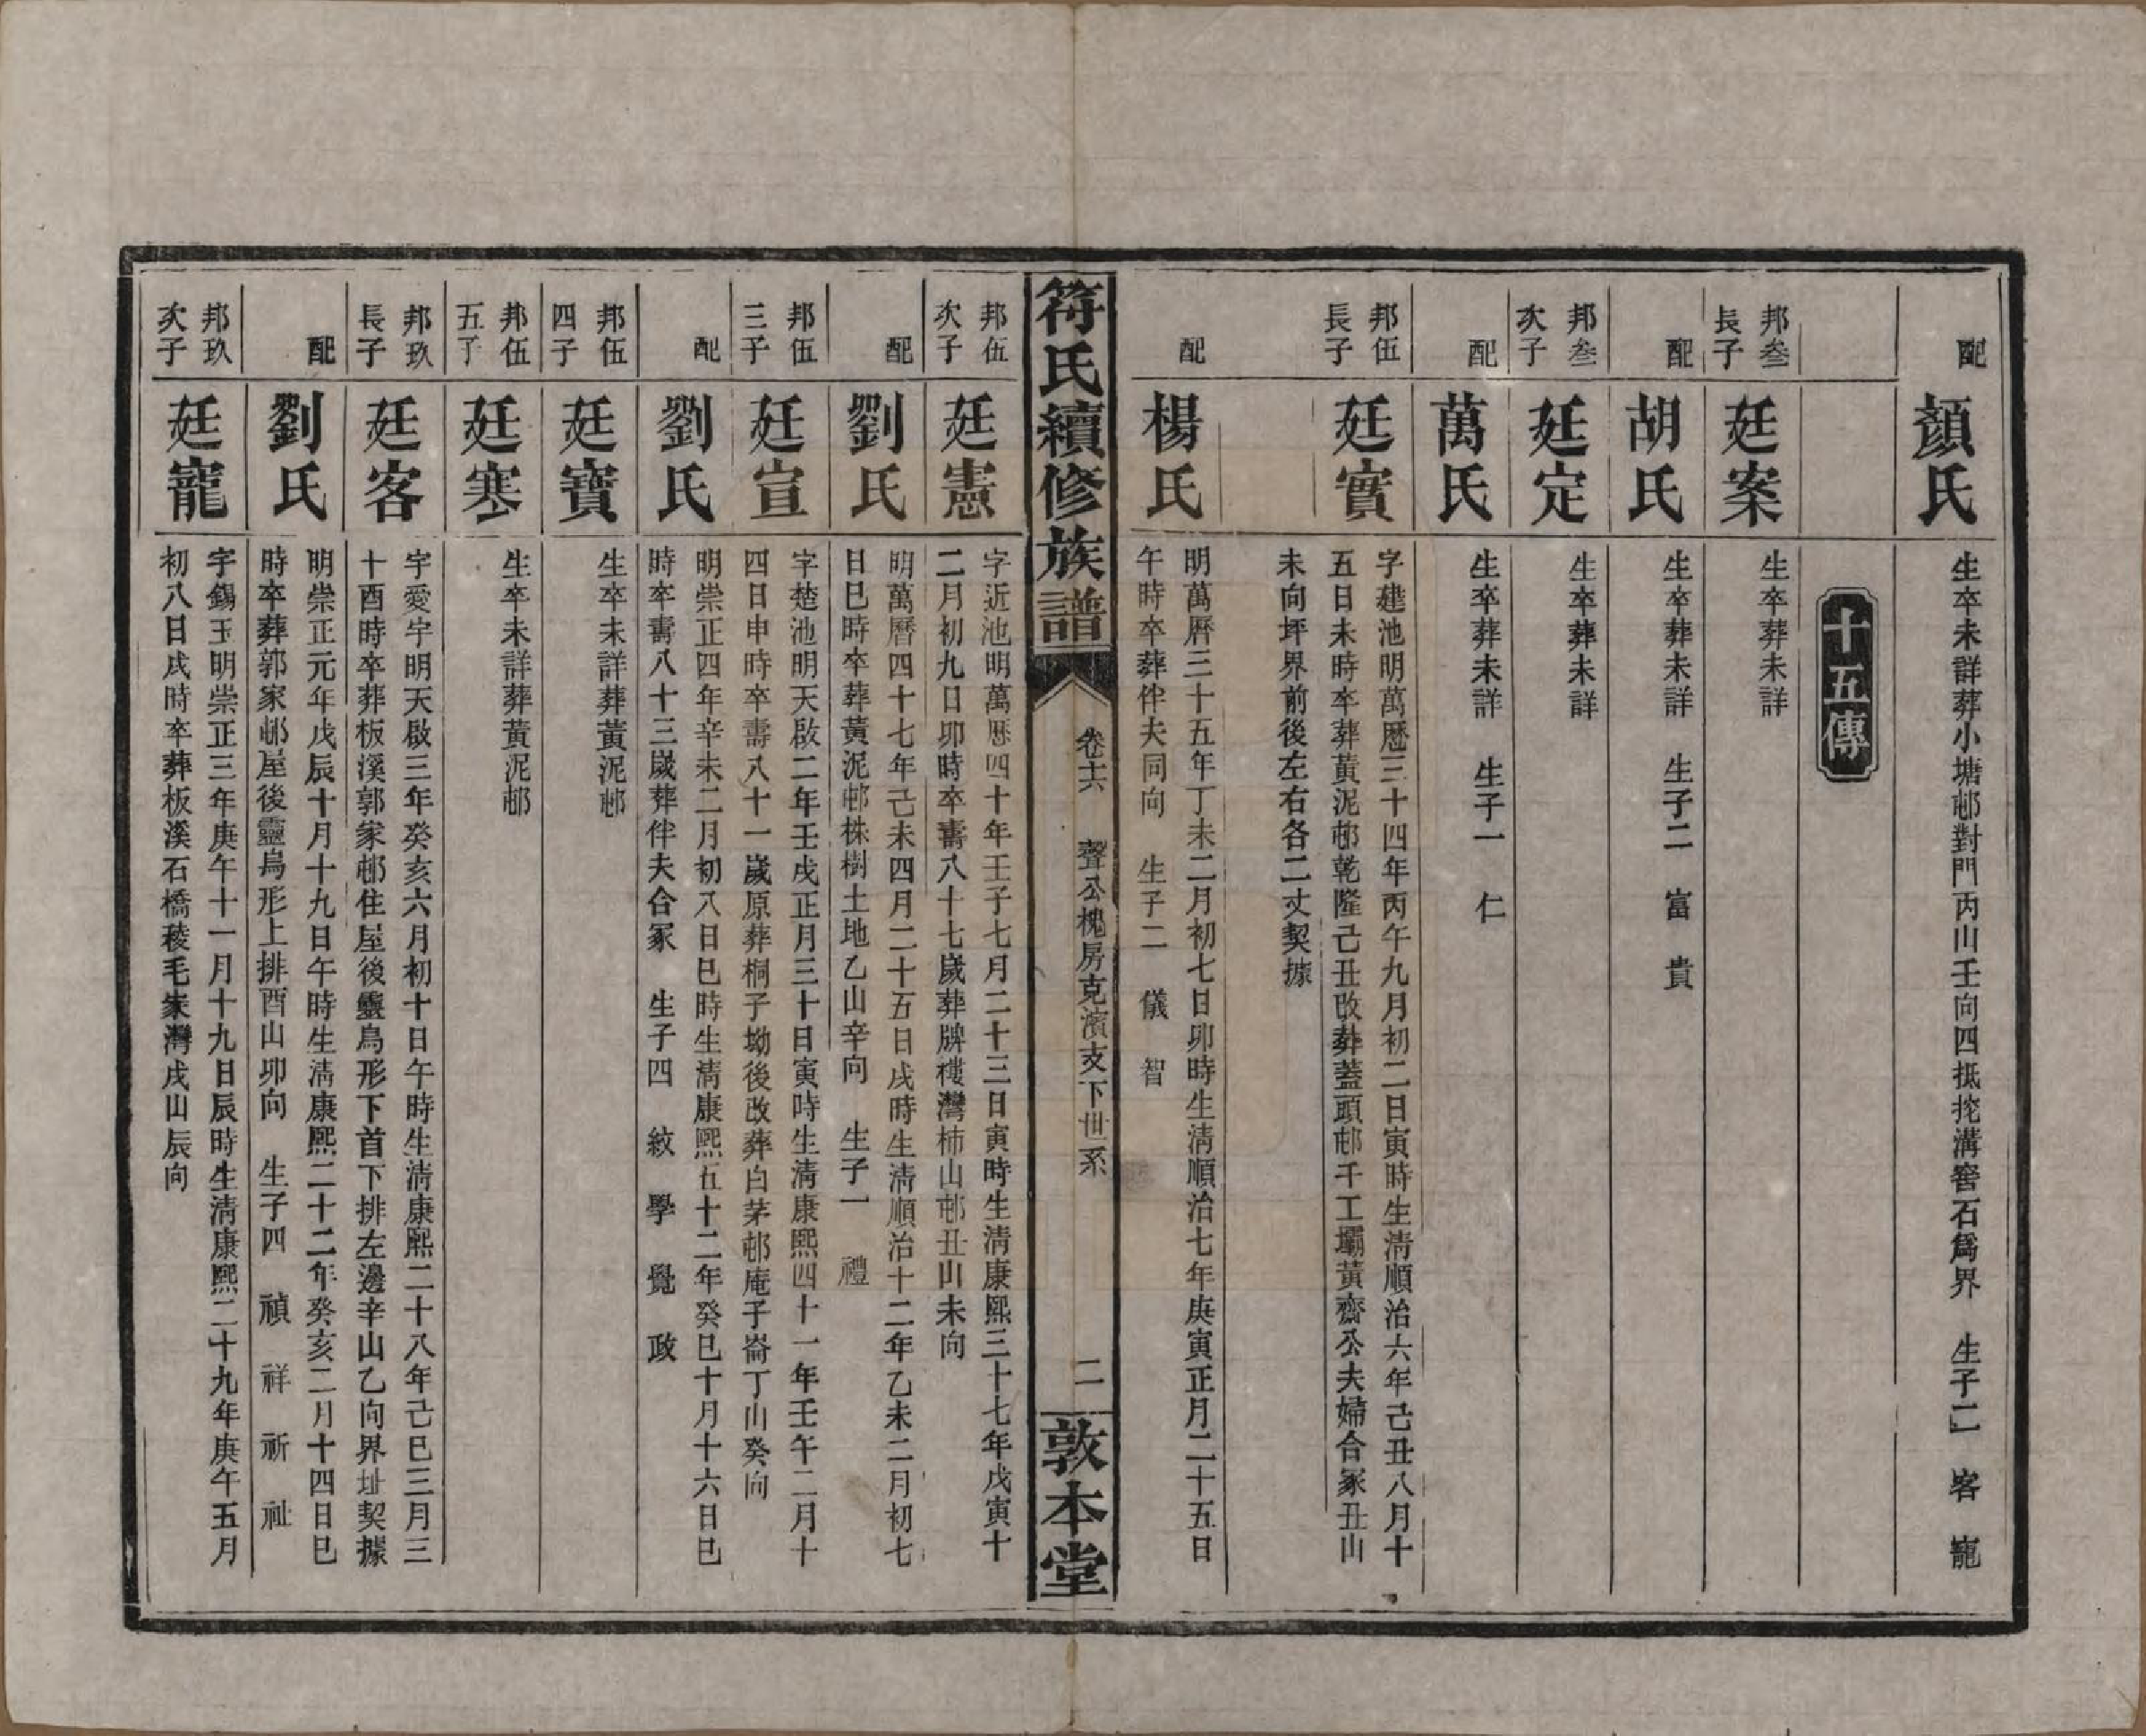 配
顏氏
生卒未詳葬小塘邨對門丙山壬向四抵挖溝窖石爲界　生子二　客　寵
十五傳
邦叁
長子
廷案
生卒葬未詳
配
胡氏
生卒葬未詳　生子二　富　貴
邦叁
次子
廷定
生卒葬未詳
配
萬氏
生卒葬未詳　生子一　仁
邦伍
長子
廷實
字建池明萬曆三十四年丙午九月初二日寅時生淸順治六年己丑八月十
五日未時卒葬黃泥邨乾隆己丑改葬蓋頭邨千工壩黃齋公夫婦合冢丑山
未向坪界前後左右各二丈契據
配
楊氏
明萬曆三十五年丁未二月初七日卯時生淸順治七年庚寅正月二十五日
午時卒葬伴夫同向　生子二　儀　智
符氏續修族譜
卷十六　聲公槐房克濱支下世系
二
敦本堂
邦伍
次子
廷憲
字近池明萬曆四十年壬子七月二十三日寅時生淸康熙三十七年戊寅十
二月初九日卯時卒壽八十七歲葬牌樓灣柿山邨丑山未向
配
劉氏
明萬曆四十七年己未四月二十五日戌時生淸順治十二年乙未二月初七
日巳時卒葬黃泥邨株樹土地乙山辛向　生子一　禮
邦伍
三子
廷宣
字楚池明天啟二年壬戌正月三十日寅時生淸康熙四十一年壬午二月十
四日申時卒壽八十一歲原葬桐子坳後改葬白茅邨庵子崙丁山癸向
配
劉氏
明崇正四年辛未二月初八日巳時生淸康熙五十二年癸巳十月十六日巳
時卒壽八十三歲葬伴夫合冢　生子四　紋　學　覺　政
邦伍
四子
廷寶
生卒未詳葬黃泥邨
邦伍
五子
廷寒
生卒未詳葬黃泥邨
邦玖
長子
廷客
字愛宇明天啟三年癸亥六月初十日午時生淸康熙二十八年己巳三月三
十酉時卒葬板溪郭家邨住屋後靈烏形下首下排左邊辛山乙向界址契據
配
劉氏
明崇正元年戊辰十月十九日午時生淸康熙二十二年癸亥二月十四日巳
時卒葬郭家邨屋後靈烏形上排酉山卯向　生子四　禎　祥　祈　祉
邦玖
次子
廷寵
字錫玉明崇正三年庚午十一月十九日辰時生淸康熙二十九年庚午五月
初八日戌時卒葬板溪石橋稜毛家灣戌山辰向